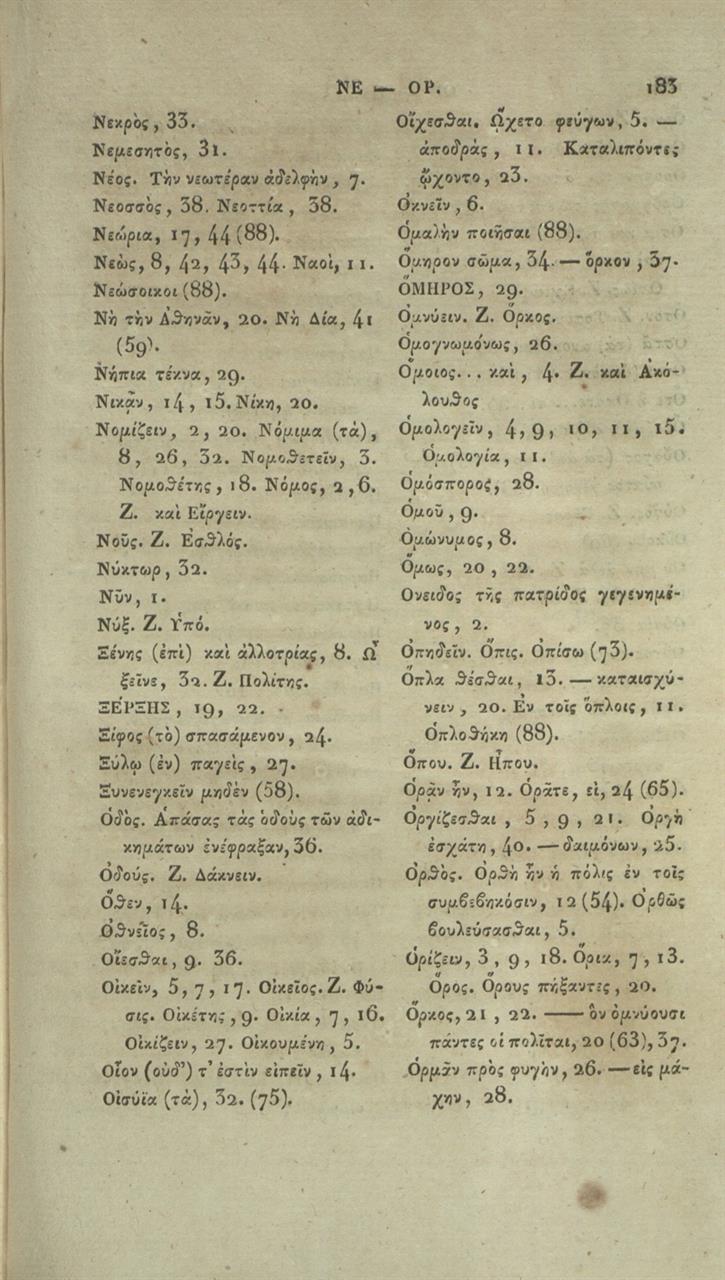 ΝΕ — ΟΡ. 183
Νεκρὸς, 33.
Νεμεσητὸς, 31.
Νέος. Τὴν νεωτέραν ἀδελφὴν, 7.
Νεοσσὸς, 38. Νεοττία, 38.
Νεώρια, 17, 44 (88).
Νεὼς, 8, 42, 43, 44. Ναοὶ, 11.
Νεώσοικοι (88).
Νὴ τὴν Ἀθηνᾶν, 20. Νὴ Δία, 41
(59).
Νήπια τέκνα, 29.
Νικᾷν, 14, 15. Νίκη, 20.
Νομίζειν, 2, 20. Νόμιμα (τὰ),
8, 26, 32. Νομοθετεῖν, 3.
Νομοθέτης, 18. Νόμος, 2, 6.
Ζ. καὶ Εἴργειν.
Νοῦς. Ζ. Ἐσθλός.
Νύκτωρ, 32.
Νῦν, 1.
Νύξ. Ζ. Ὑπό.
Ξένης (ἐπὶ) καὶ ἀλλοτρίας, 8. Ὦ
ξεῖνε, 32. Ζ. Πολίτης.
ΞΕΡΞΗΣ, 19, 22.
Ξίφος (τὸ) σπασάμενον, 24.
Ξύλῳ (ἐν) παγεὶς, 27.
Ξυνενεγκεῖν μηδὲν (58).
Ὁδὸς. Ἁπάσας τὰς ὁδοὺς τῶν ἀδι-
κημάτων ἐνέφραξαν, 36.
Ὀδούς. Ζ. Δάκνειν.
Ὅθεν, 14.
Ὀθνεῖος, 8.
Οἴεσθαι, 9. 36.
Οἰκεῖν, 5, 7, 17. Οἰκεῖος. Ζ. Φύ-
σις. Οἰκέτης, 9. Οἰκία, 7, 16.
Οἰκίζειν, 27. Οἰκουμένη, 5.
Οἷον (οὐδ’) τ’ ἐστὶν εἰπεῖν, 14.
Οἰσύϊα (τὰ), 32. (75).
Οἴχεσθαι. ᾬχετο φεύγων, 5. —
ἀποδρὰς, 11. Καταλιπόντες
ᾤχοντο, 23.
Ὀκνεῖν, 6.
Ὁμαλὴν ποιῆσαι (88).
Ὅμηρον σῶμα, 34. — ὅρκον, 37.
ὍΜΗΡΟΣ, 29.
Ὀμνύειν. Ζ. Ὅρκος.
Ὁμογνωμόνως, 26.
Ὅμοιος... καὶ, 4. Ζ. καὶ Ἀκό-
λουθος
Ὁμολογεῖν, 4, 9, 10, 11, 15.
Ὁμολογία, 11.
Ὁμόσπορος, 28.
Ὁμοῦ, 9.
Ὁμώνυμος, 8.
Ὅμως, 20, 22.
Ονειδος τῆς πατρίδος γεγενημέ-
νος, 2.
Ὀπηδεῖν. Ὄπις. Ὀπίσω (73).
Ὅπλα θέσθαι, 13. — καταισχύ-
νειν, 20. Ἐν τοῖς ὅπλοις, 11.
Ὁπλοθήκη (88).
Ὅπου. Ζ. Ἦπου.
Ὁρᾷν ἦν, 12. Ὁρᾶτε, εἰ, 24 (65).
Ὀργίζεσθαι, 5, 9, 21. Ὀργὴ
ἐσχάτη, 40. — δαιμόνων, 25.
Ὀρθὸς. Ὀρθὴ ἦν ἡ πόλις ἐν τοῖς
συμβεβηκόσιν, 12 (54). Ὀρθῶς
βουλεύσασθαι, 5.
Ὁρίζειν, 3, 9, 18. Ὅρια, 7, 13.
Ὅρος. Ὅρους πήξαντες, 20.
Ὅρκος, 21, 22. — ὃν ὀμνύουσι
πάντες οἱ πολῖται, 20 (63), 37.
Ὁρμᾶν πρὸς φυγὴν, 26. — εἰς μά-
χην, 28.